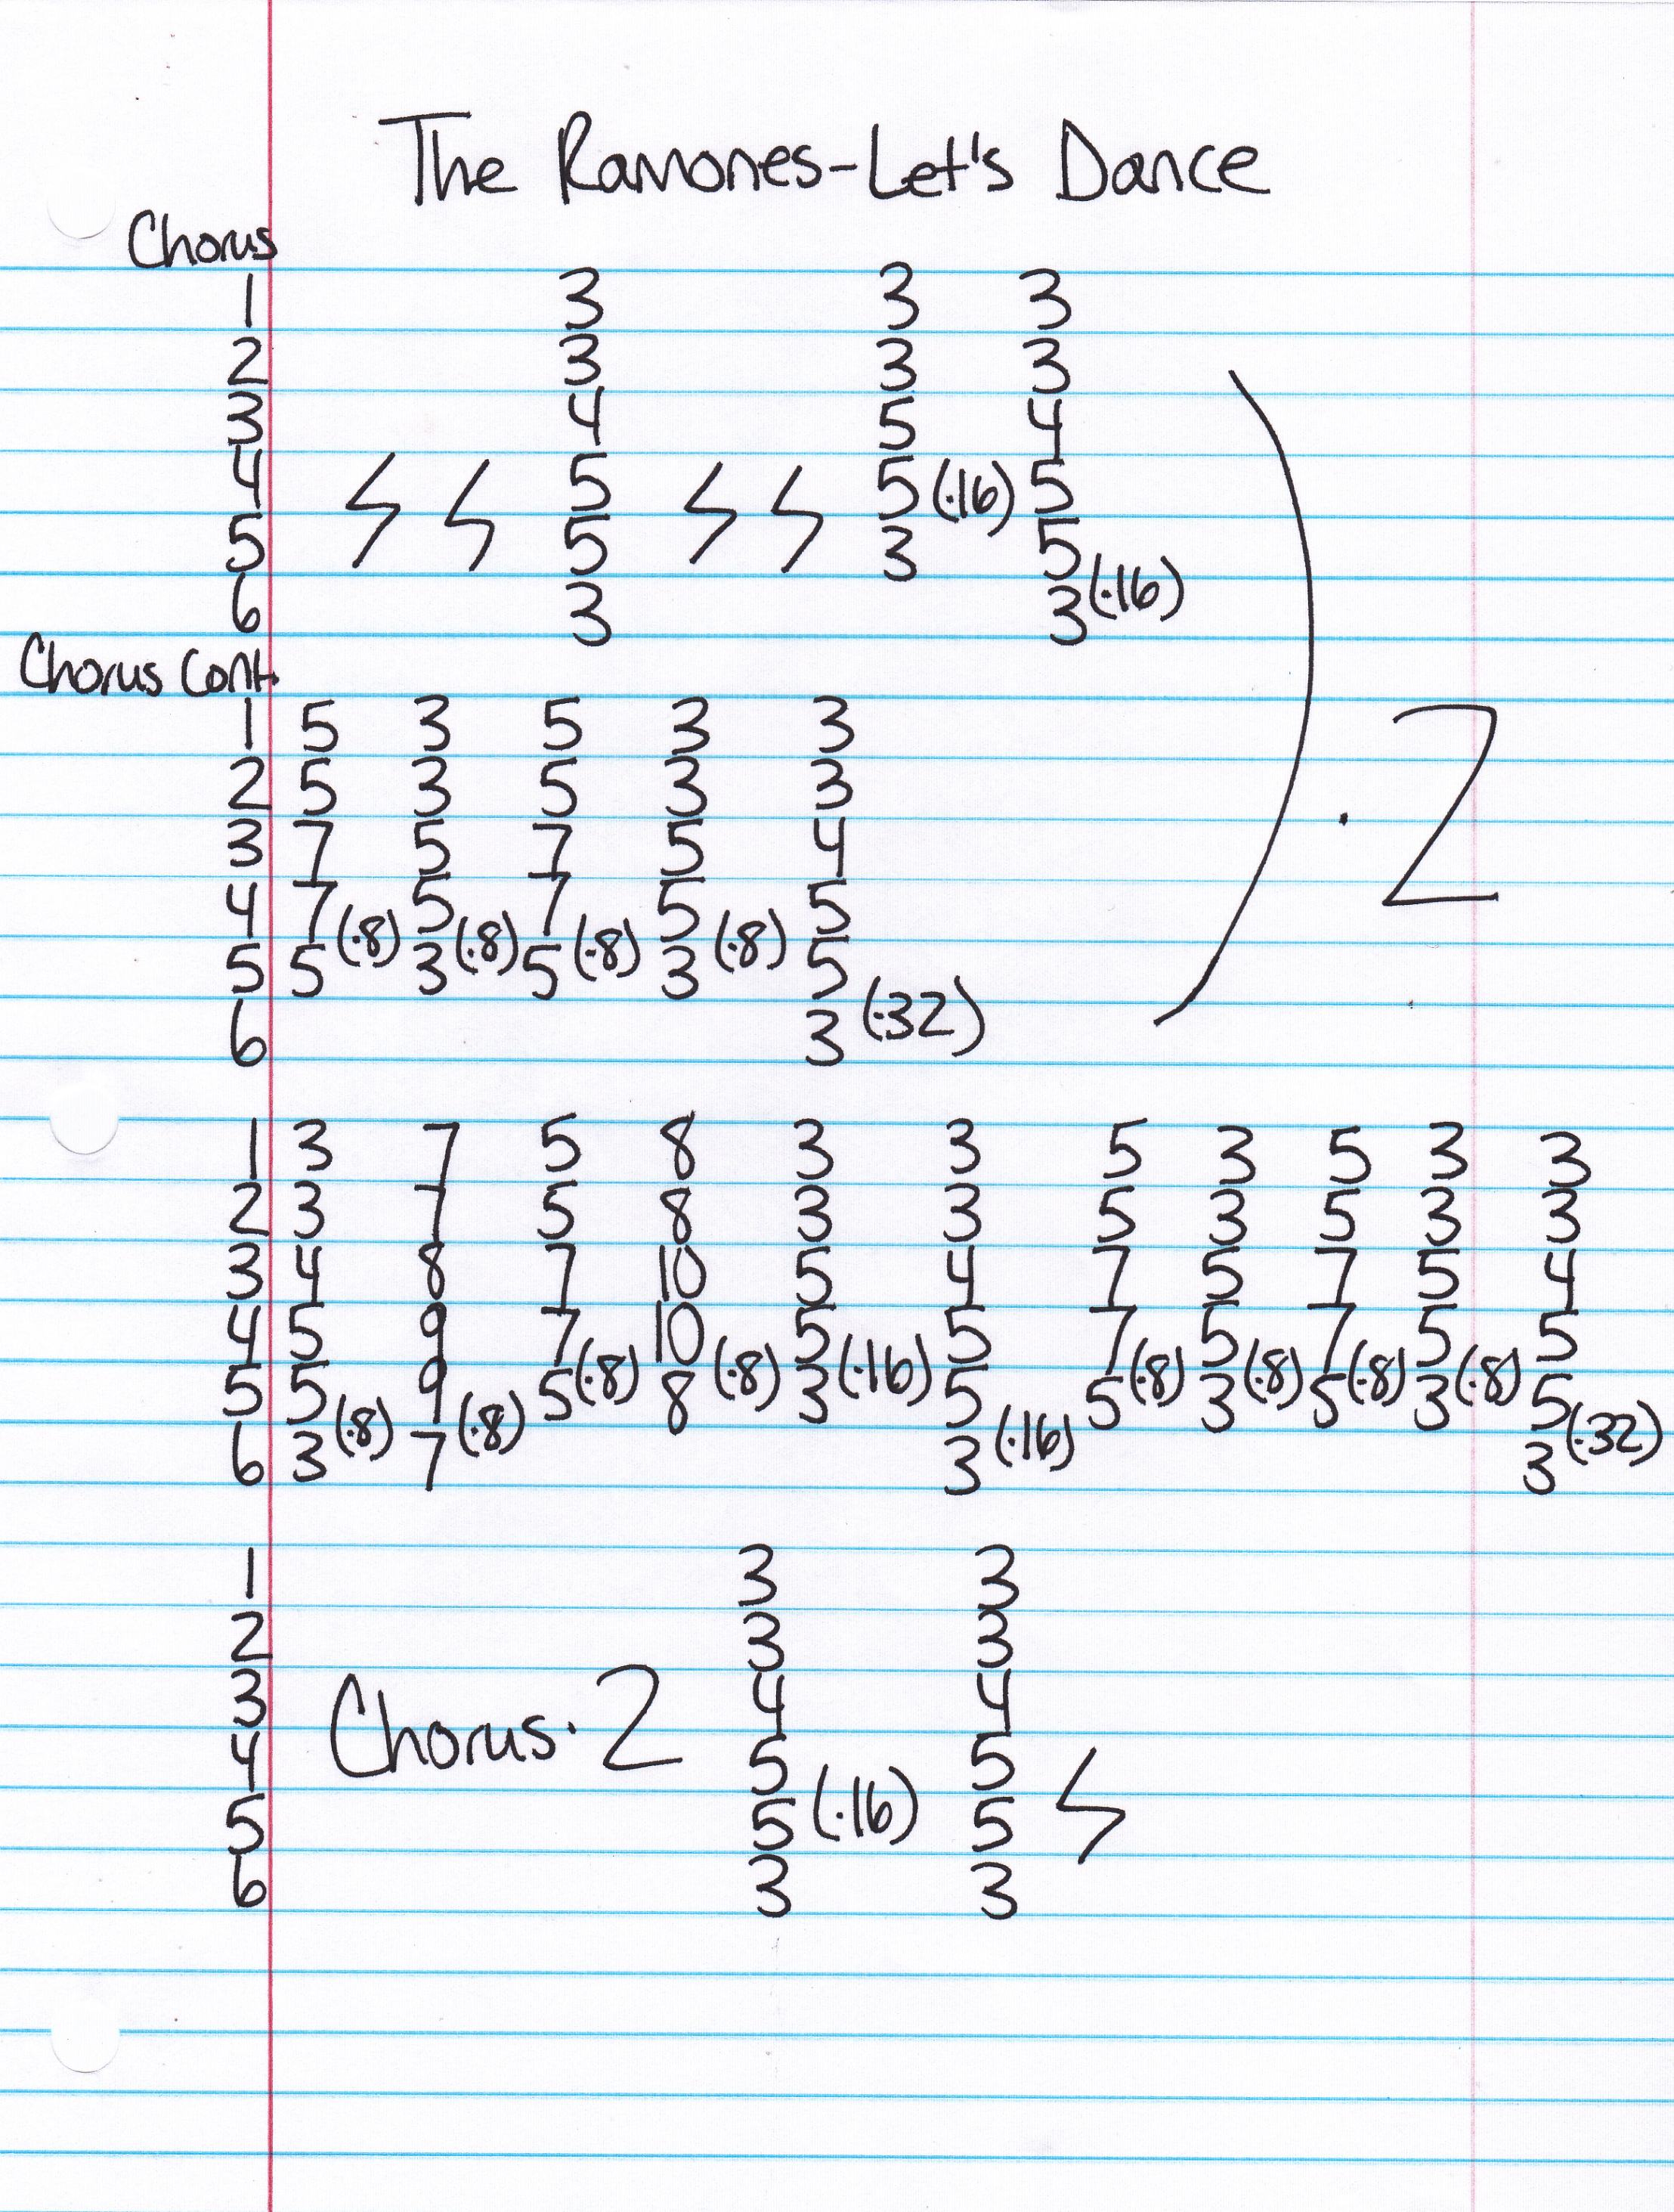 The Ramones-Let's Dance
Chorus
1 3 3 3
2 3 3 3
3 4 5 4
4 5 5 (·16) 5
5 5 3 5
6 3 3 (·16)
Chorus Cont.
1 5 3 5 3 3
2 5 3 5 3 3
3 7 5 7 5 4
4 7 5 7 5 5
5 5 (·8) 3 (·8) 5 (·8) 3 (·8) 5
6 3 (·32)
· 2
1 3 7 5 8 3 3 5 3 5 3 3
2 3 7 5 8 3 3 5 3 5 3 3
3 4 8 7 10 5 4 7 5 7 5 4
4 5 9 7 10 5 5 7 5 7 5 5
5 5 9 5 (·8) 8 (·8) 3 (·16) 5 5 (·8) 3 (·8) 5 (·8) 3 (·8) 5
6 3 (·8) 7 (·8) 3 (·16) 3 (·32)
1 3 3
2 3 3
3 4 4
4 Chorus · 2 5 5
5 5 (·16) 5
6 3 3